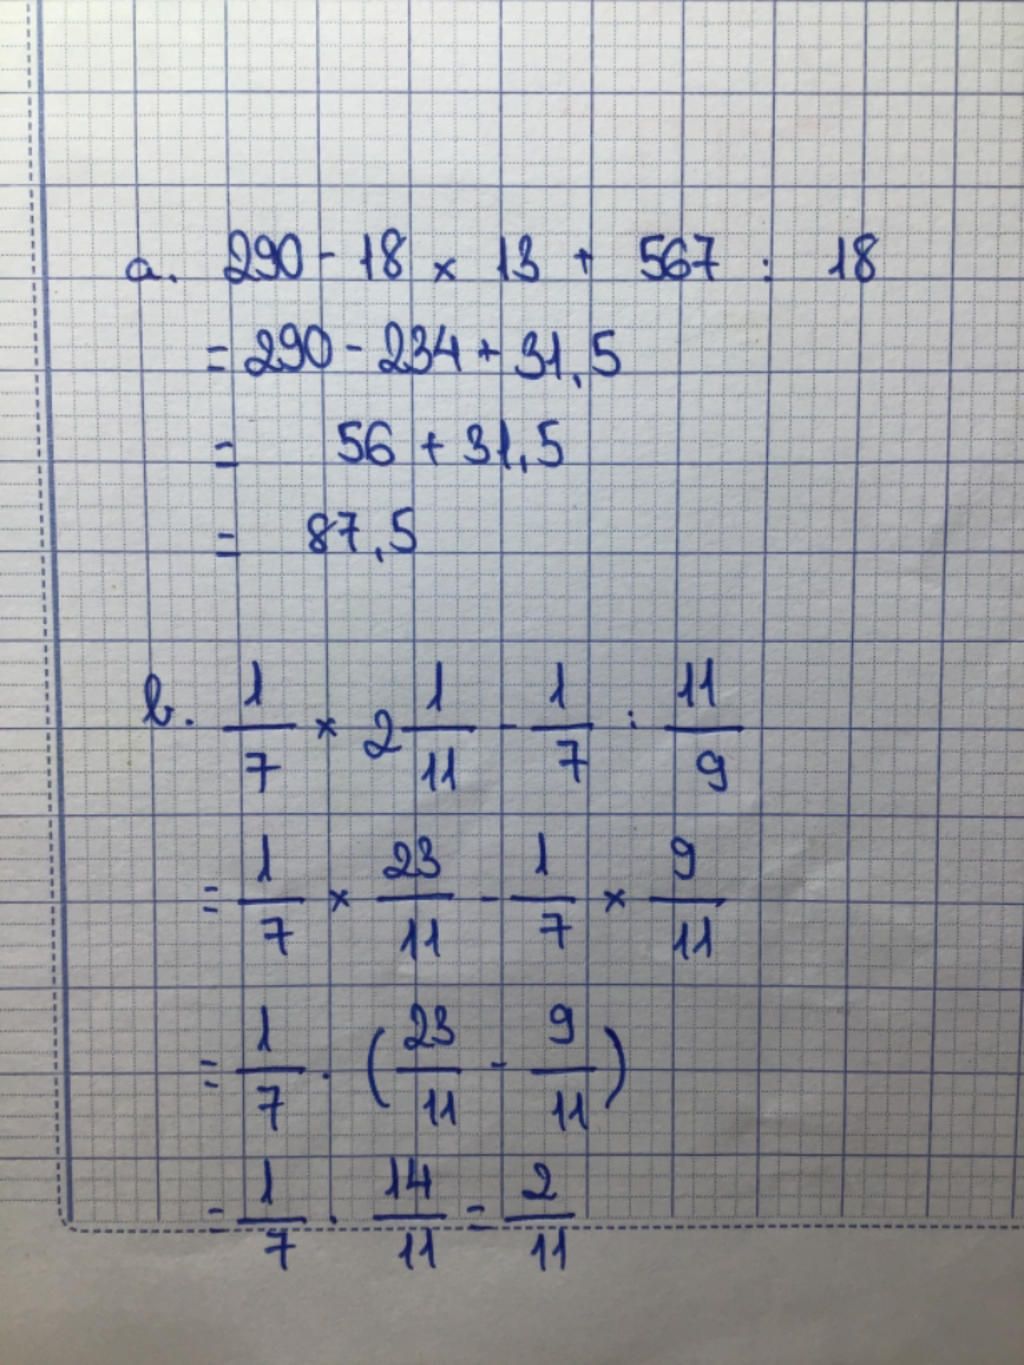 a. 290 - 18 × 13 + 567 : 18
= 290 - 234 + 31,5
= 56 + 31,5
= 87,5
b. 1/7 × 2 1/11 - 1/7 : 11/9
= 1/7 × 23/11 - 1/7 × 9/11
= 1/7 . (23/11 - 9/11)
= 1/7 . 14/11 = 2/11